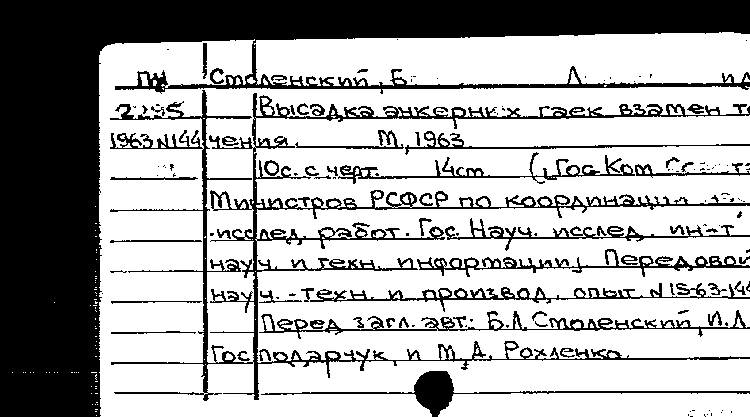 ПН Смоленский, Б. Л. и д
2295 Высадка анкерных гаек взамен то
1963 N144 чения. М., 1963
10с. с черт. 14см (Гос Ком Совета
Министров РСФСР по координации
-исслед. работ. Гос. Науч. исслед. ин-т
науч. и техн. информации) Передовой
науч.-техн. и производ. опыт N 15-63-144
Перед загл. авт: Б.Л. Смоленский, И.Л
Господарчук, и М.А. Рохленко.